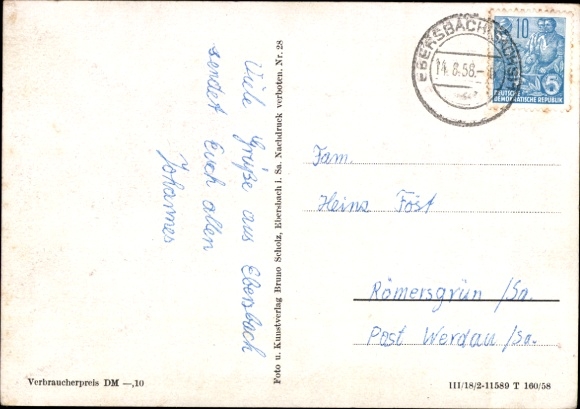 Viele Grüße aus Ebersbach
sendet Euch allen
Johannes
Verbraucherpreis DM —,10
Foto u. Kunstverlag Bruno Scholz, Ebersbach i. Sa. Nachdruck verboten. Nr. 28
EBERSBACH (SACHS)
14.8.58.-
10
5
DEUTSCHE
DEMOKRATISCHE REPUBLIK
Fam.
Heinz Föst
Römersgrün /Sa.
Post Werdau /Sa.
III/18/2-11589 T 160/58